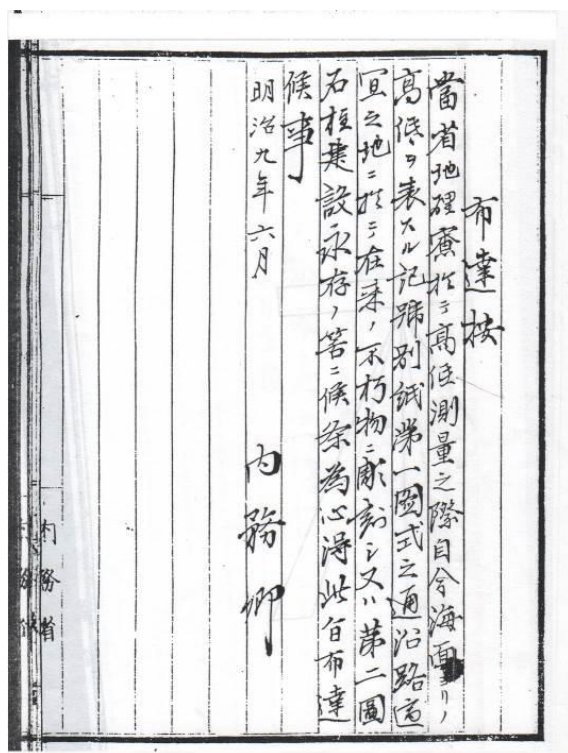 布達按
當省地理寮於テ高低測量之際自今海面ヨリノ
高低ヲ表スル記號別紙第一圖式之通沿路適
宜之地ニ於テ在来ノ不朽物ニ彫刻シ又ハ第二圖
石柱建設永存ノ筈ニ候条為心得此旨布達
候事
明治九年六月
内務卿
内務省